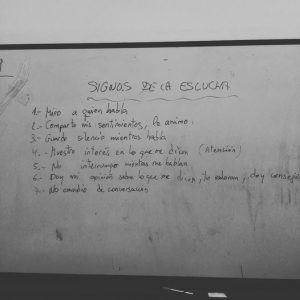 SIGNOS DE LA ESCUCHA
1.- Miro a quien habla
2.- Comparto mis sentimientos, le animo.
3.- Guardo silencio mientras habla
4.- Muestro interés en lo que me dicen (Atención)
5.- No interrumpo mientras me hablan.
6.- Doy mi opinión sobre lo que me dicen, lo valoran, doy consejos
7.- No cambio de conversación